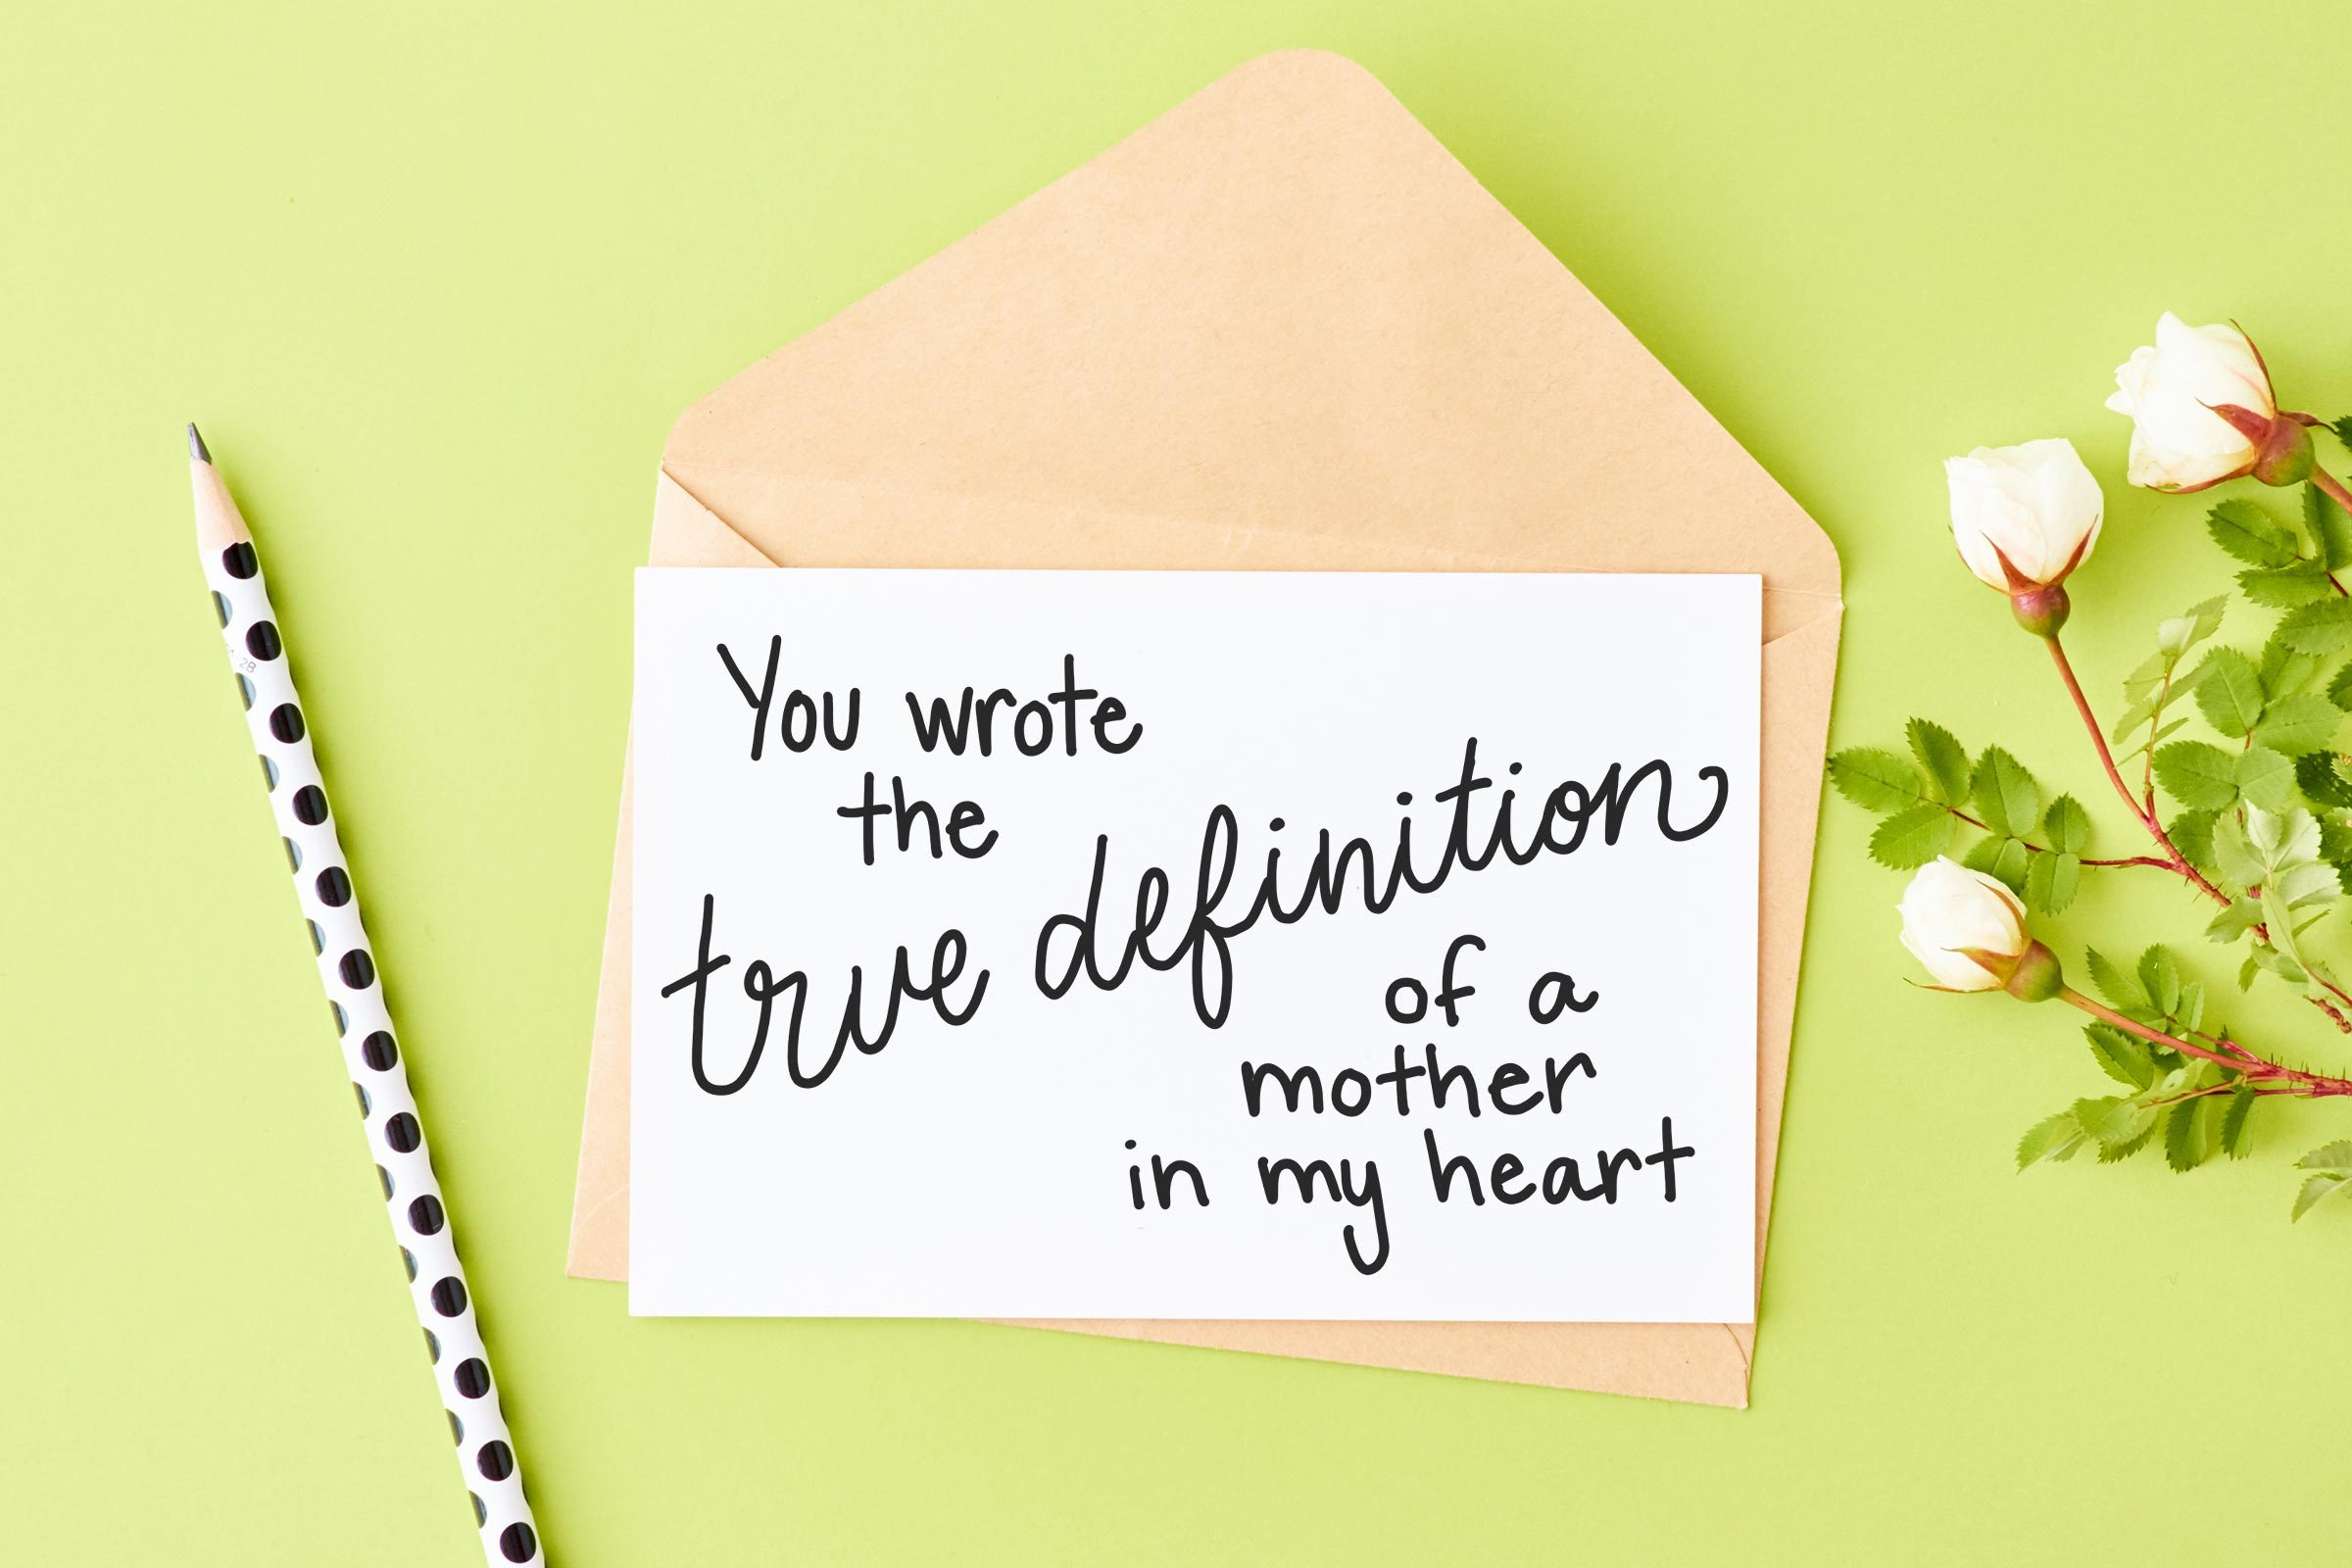 You wrote
the
true definition
of a
mother
in my heart
2B